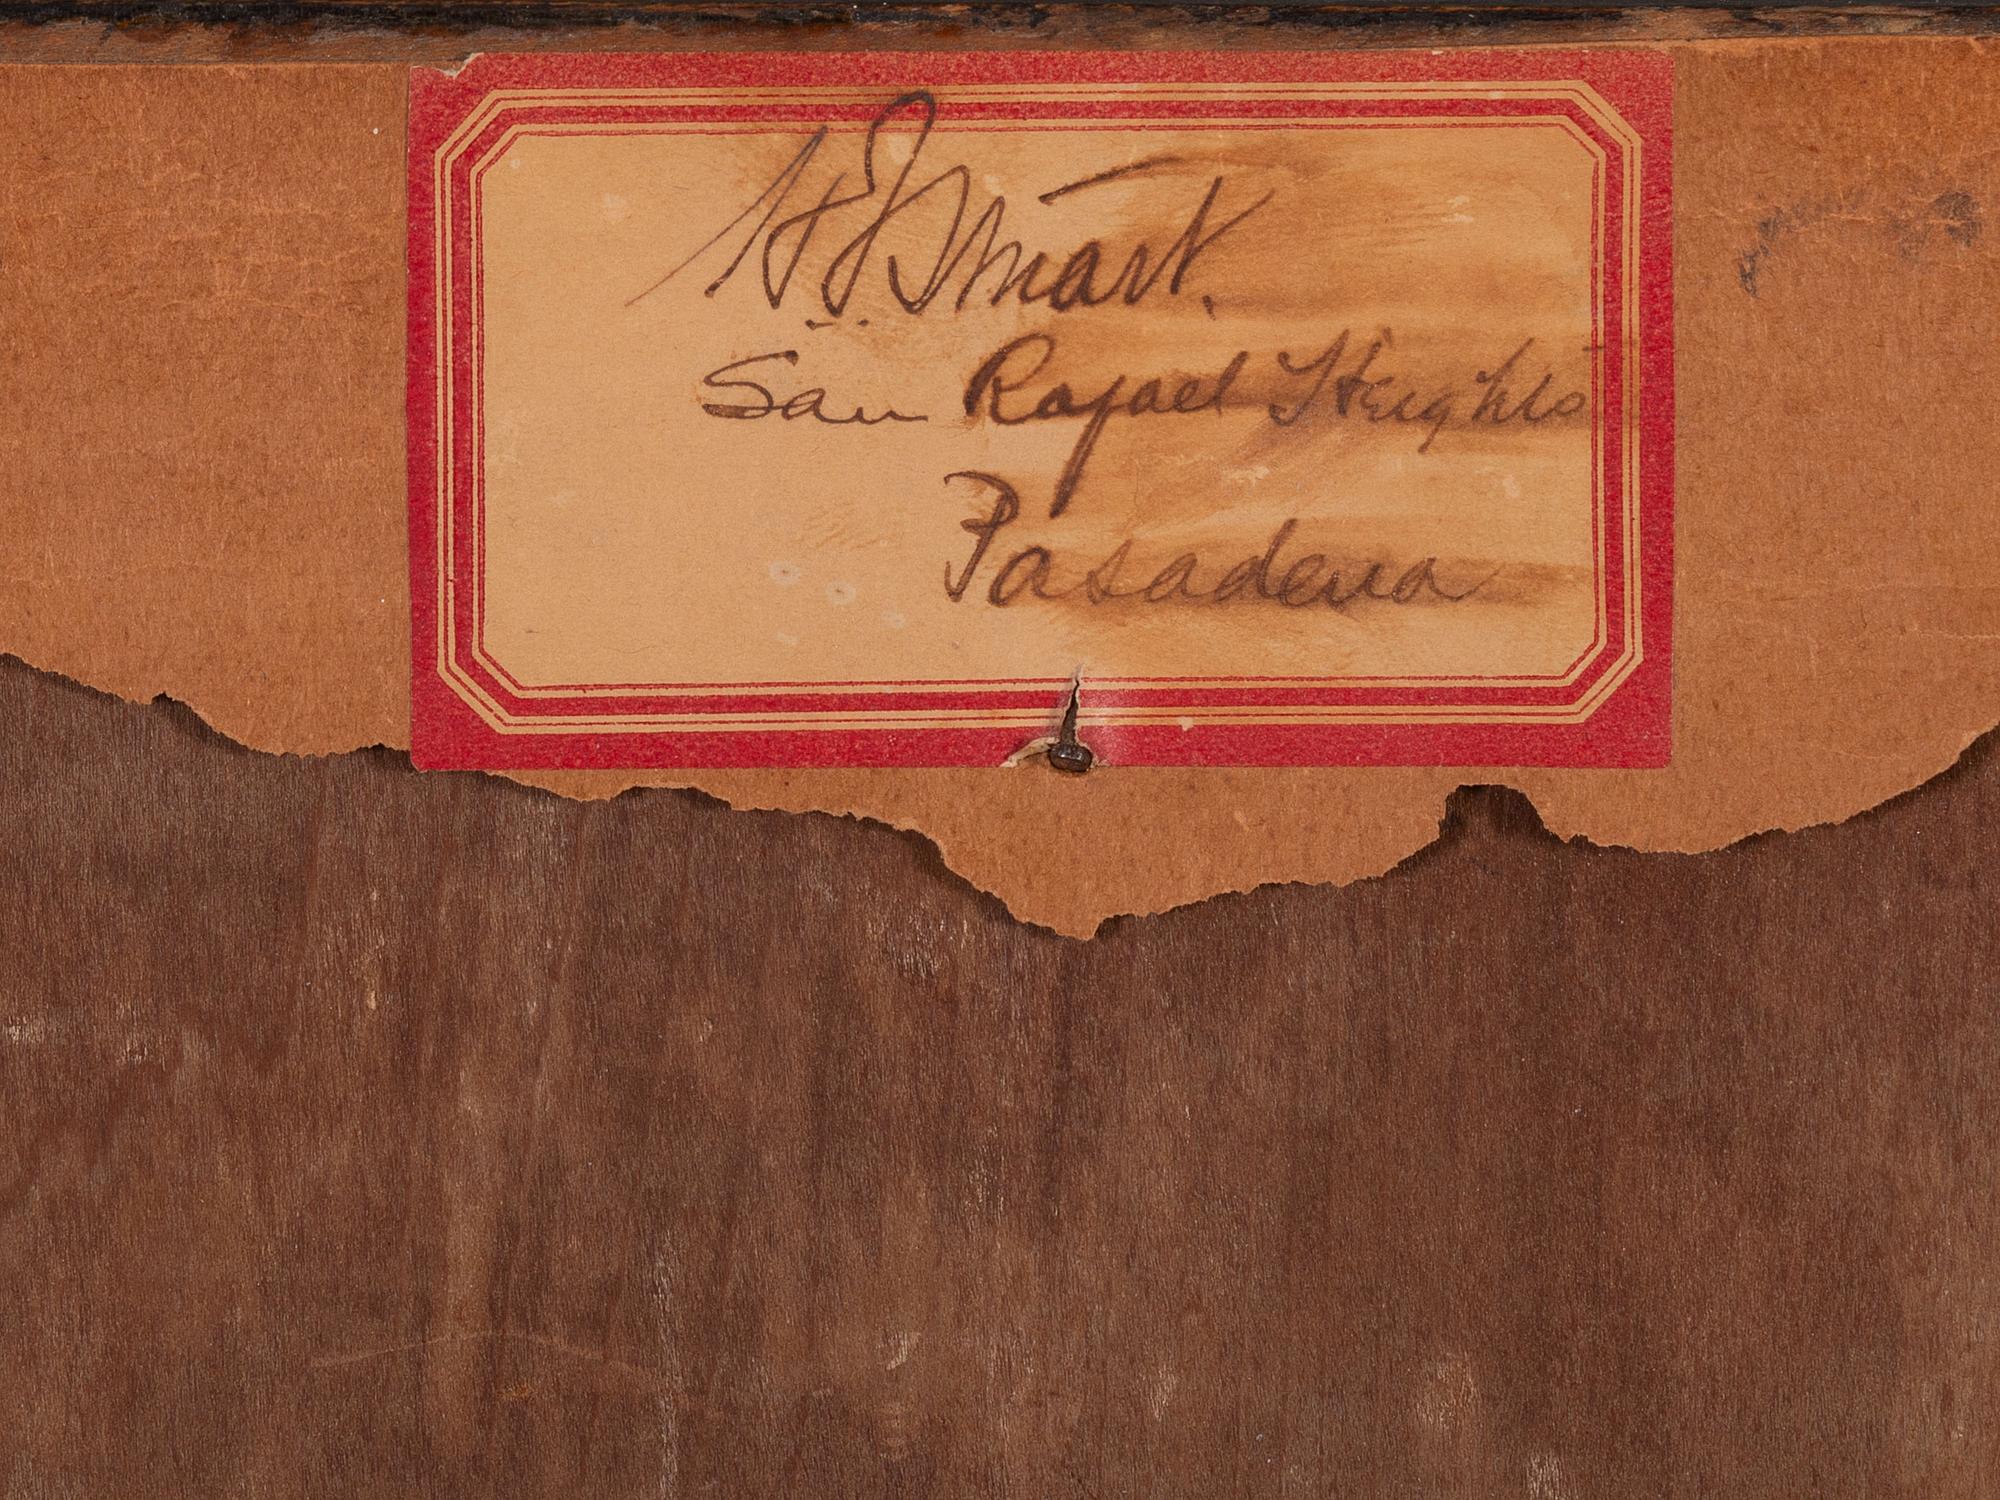 H J Smart.
San Rafael Heights
Pasadena